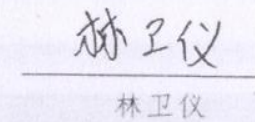 林卫仪
林卫仪